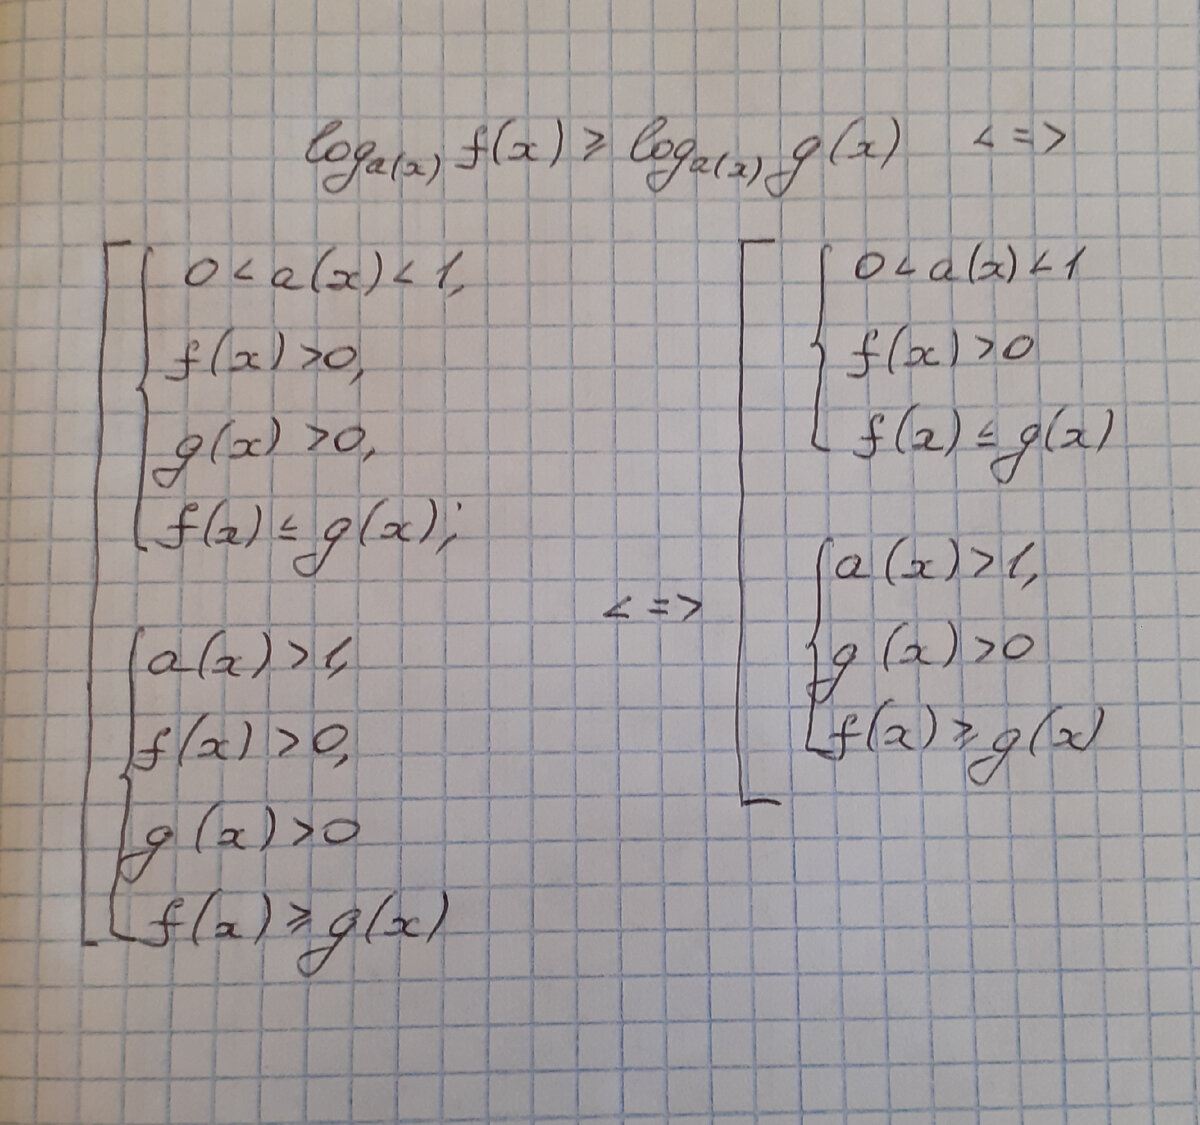 log_{a(x)} f(x) ≥ log_{a(x)} g(x) <=>
0 < a(x) < 1,
f(x) > 0,
g(x) > 0,
f(x) ≤ g(x);
a(x) > 1,
f(x) > 0,
g(x) > 0
f(x) ≥ g(x)
<=>
0 < a(x) < 1
f(x) > 0
f(x) ≤ g(x)
a(x) > 1,
g(x) > 0
f(x) ≥ g(x)